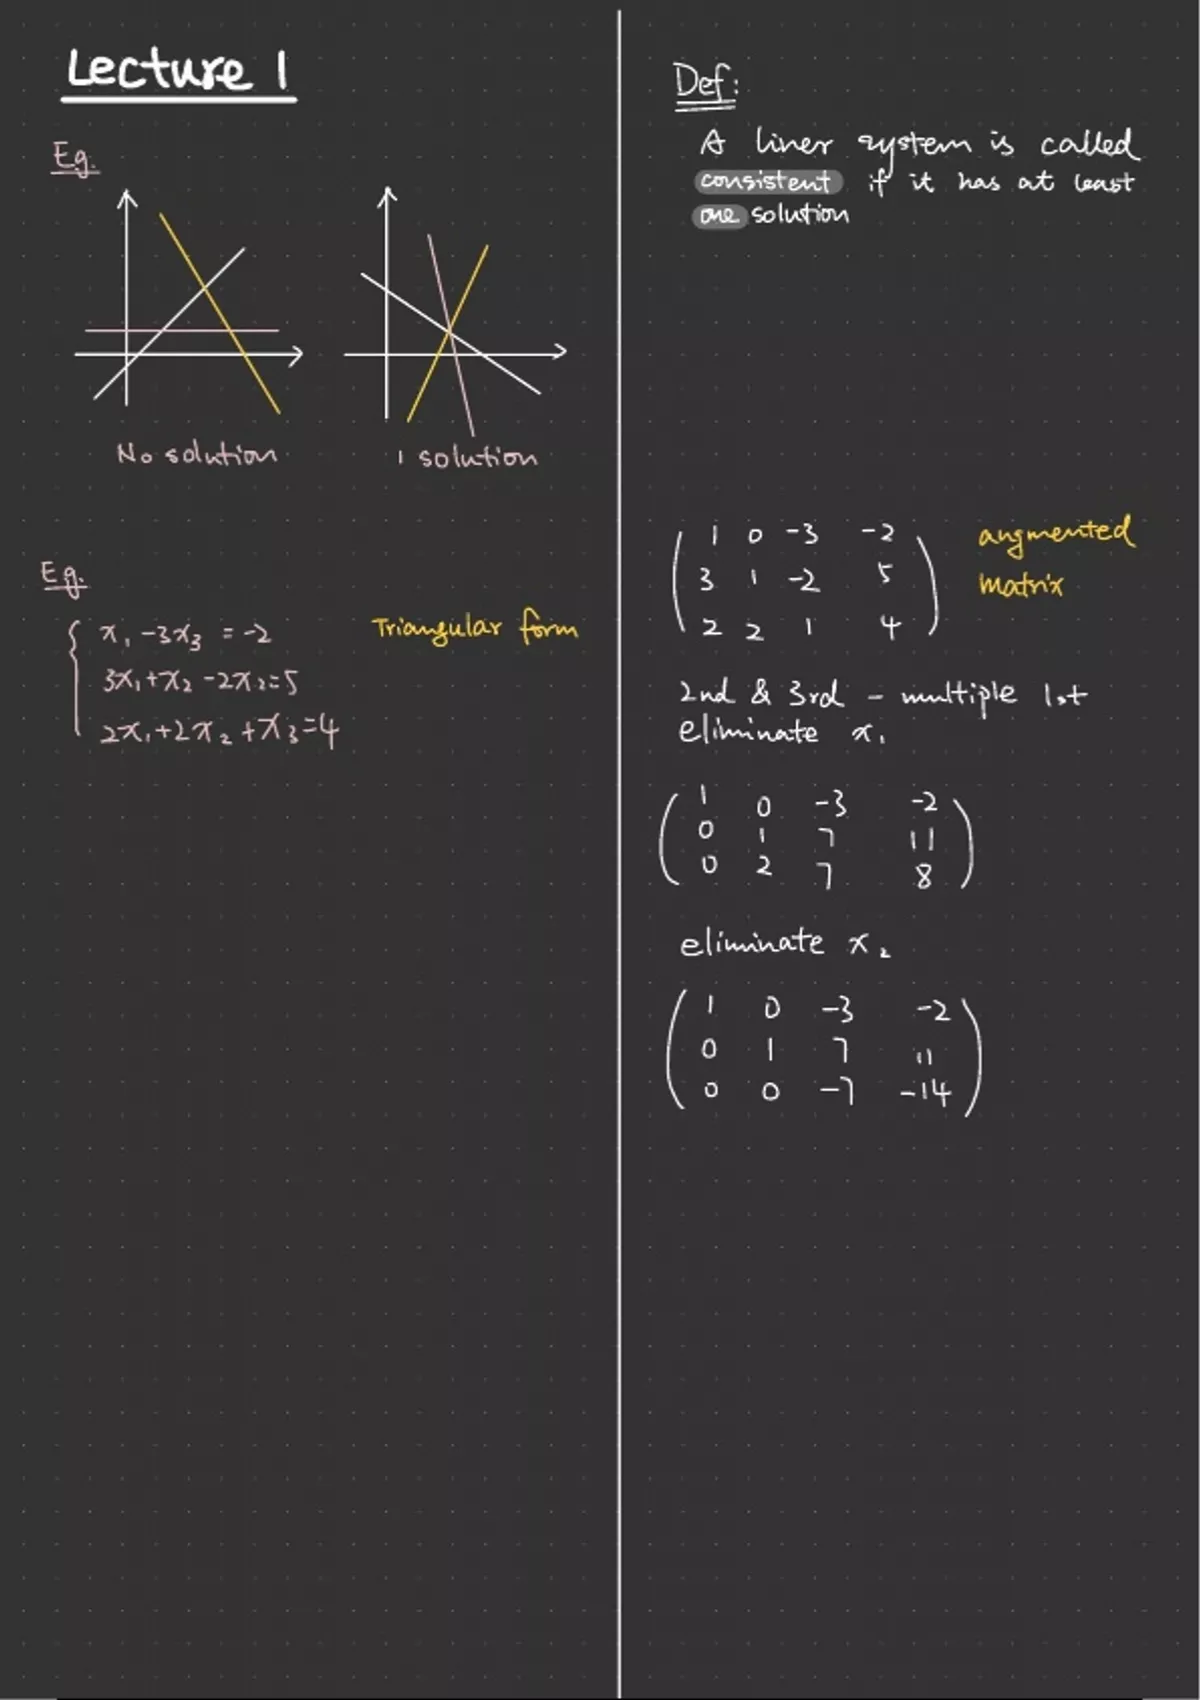 Lecture 1
Eg.
No solution
1 solution
Eg.
x₁ -3x₃ = -2
3x₁+x₂ -2x₂=5
2x₁+2x₂ +x₃=4
Triangular form
Def:
A liner system is called
consistent if it has at least
one solution
1 0 -3 -2
3 1 -2 5
2 2 1 4
augmented
matrix
2nd & 3rd - multiple 1st
eliminate x₁
1 0 -3 -2
0 1 7 11
0 2 7 8
eliminate x₂
1 0 -3 -2
0 1 7 11
0 0 -7 -14